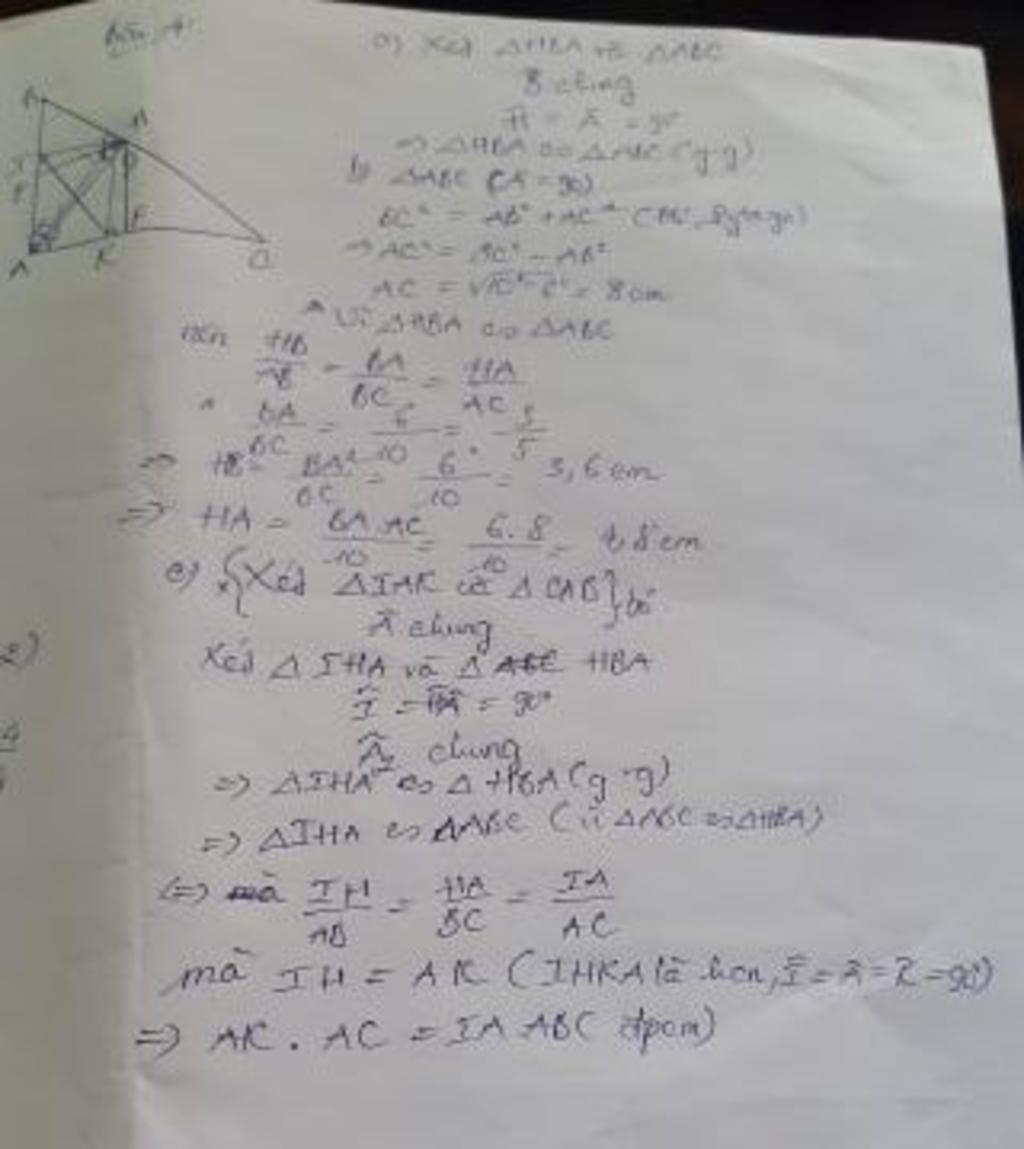 Bài 4:
a) Xét △HBA và △ABC
B chung
H = A = 90°
=> △HBA ∽ △ABC (g-g)
b) △ABC (A = 90)
BC² = AB² + AC² (Pytago)
=> AC² = BC² - AB²
AC = √10² - 6² = 8cm
* Vì △HBA ∽ △ABC
nên HB/AB = BA/BC = HA/AC
* BA/BC = 6/10 = 3/5
=> HB = BA²/BC = 6²/10 = 3,6 cm
=> HA = BA.AC/10 = 6.8/10 = 4,8cm
c) {Xét △IAK và △CAB} bỏ
Â chung
Xét △IHA và △ABC HBA
Î = = 90°
Â₂ chung
=> △IHA ∽ △HBA (g-g)
=> △IHA ∽ △ABC (vì △ABC ∽ △HBA)
(=> mà IH/AB = HA/BC = IA/AC
mà IH = AK (IHKA là hcn, Î = Â = K = 90)
=> AK . AC = IA ABC đpcm)
2)
4
A
K
F
C